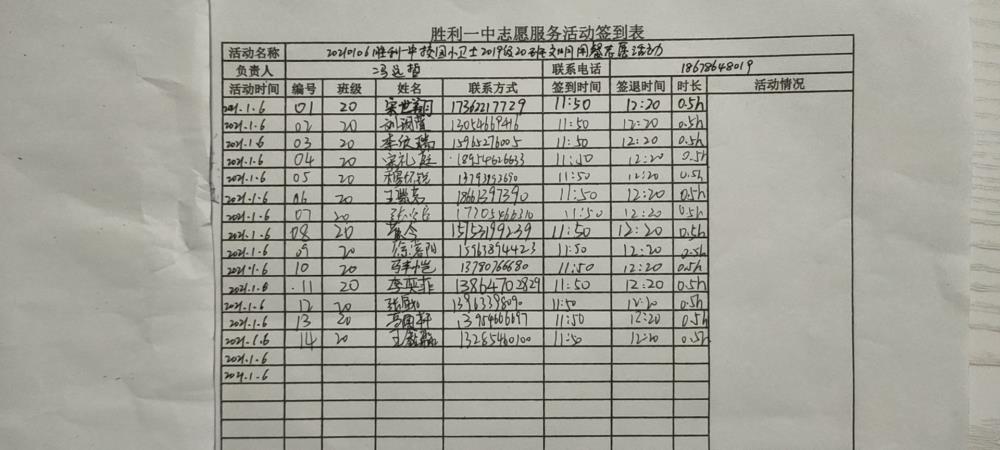 胜利一中志愿服务活动签到表
活动名称 20210106胜利一中校园小卫士2019级20班文明用餐志愿活动
负责人 冯延哲 联系电话 18678648019
活动时间 编号 班级 姓名 联系方式 签到时间 签退时间 时长 活动情况
2021.1.6 01 20 宋世翔 17362217729 11:50 12:20 0.5h
2021.1.6 02 20 13054669416 11:50 12:20 0.5h
2021.1.6 03 20 李欣瑞 15965276005 11:50 12:20 0.5h
2021.1.6 04 20 宋礼庭 18954626633 11:50 12:20 0.5h
2021.1.6 05 20 11:50 12:20 0.5h
2021.1.6 06 20 18661397390 11:50 12:20 0.5h
2021.1.6 07 20 17705466310 11:50 12:20 0.5h
2021.1.6 08 20 15153199239 11:50 12:20 0.5h
2021.1.6 09 20 15963894423 11:50 12:20 0.5h
2021.1.6 10 20 马丰恺 13780766680 11:50 12:20 0.5h
2021.1.6 11 20 李奕菲 13864702829 11:50 12:20 0.5h
2021.1.6 12 20 13963398090 11:50 12:20 0.5h
2021.1.6 13 20 高国轩 13954606697 11:50 12:20 0.5h
2021.1.6 14 20 13285460100 11:50 12:20 0.5h
2021.1.6
2021.1.6